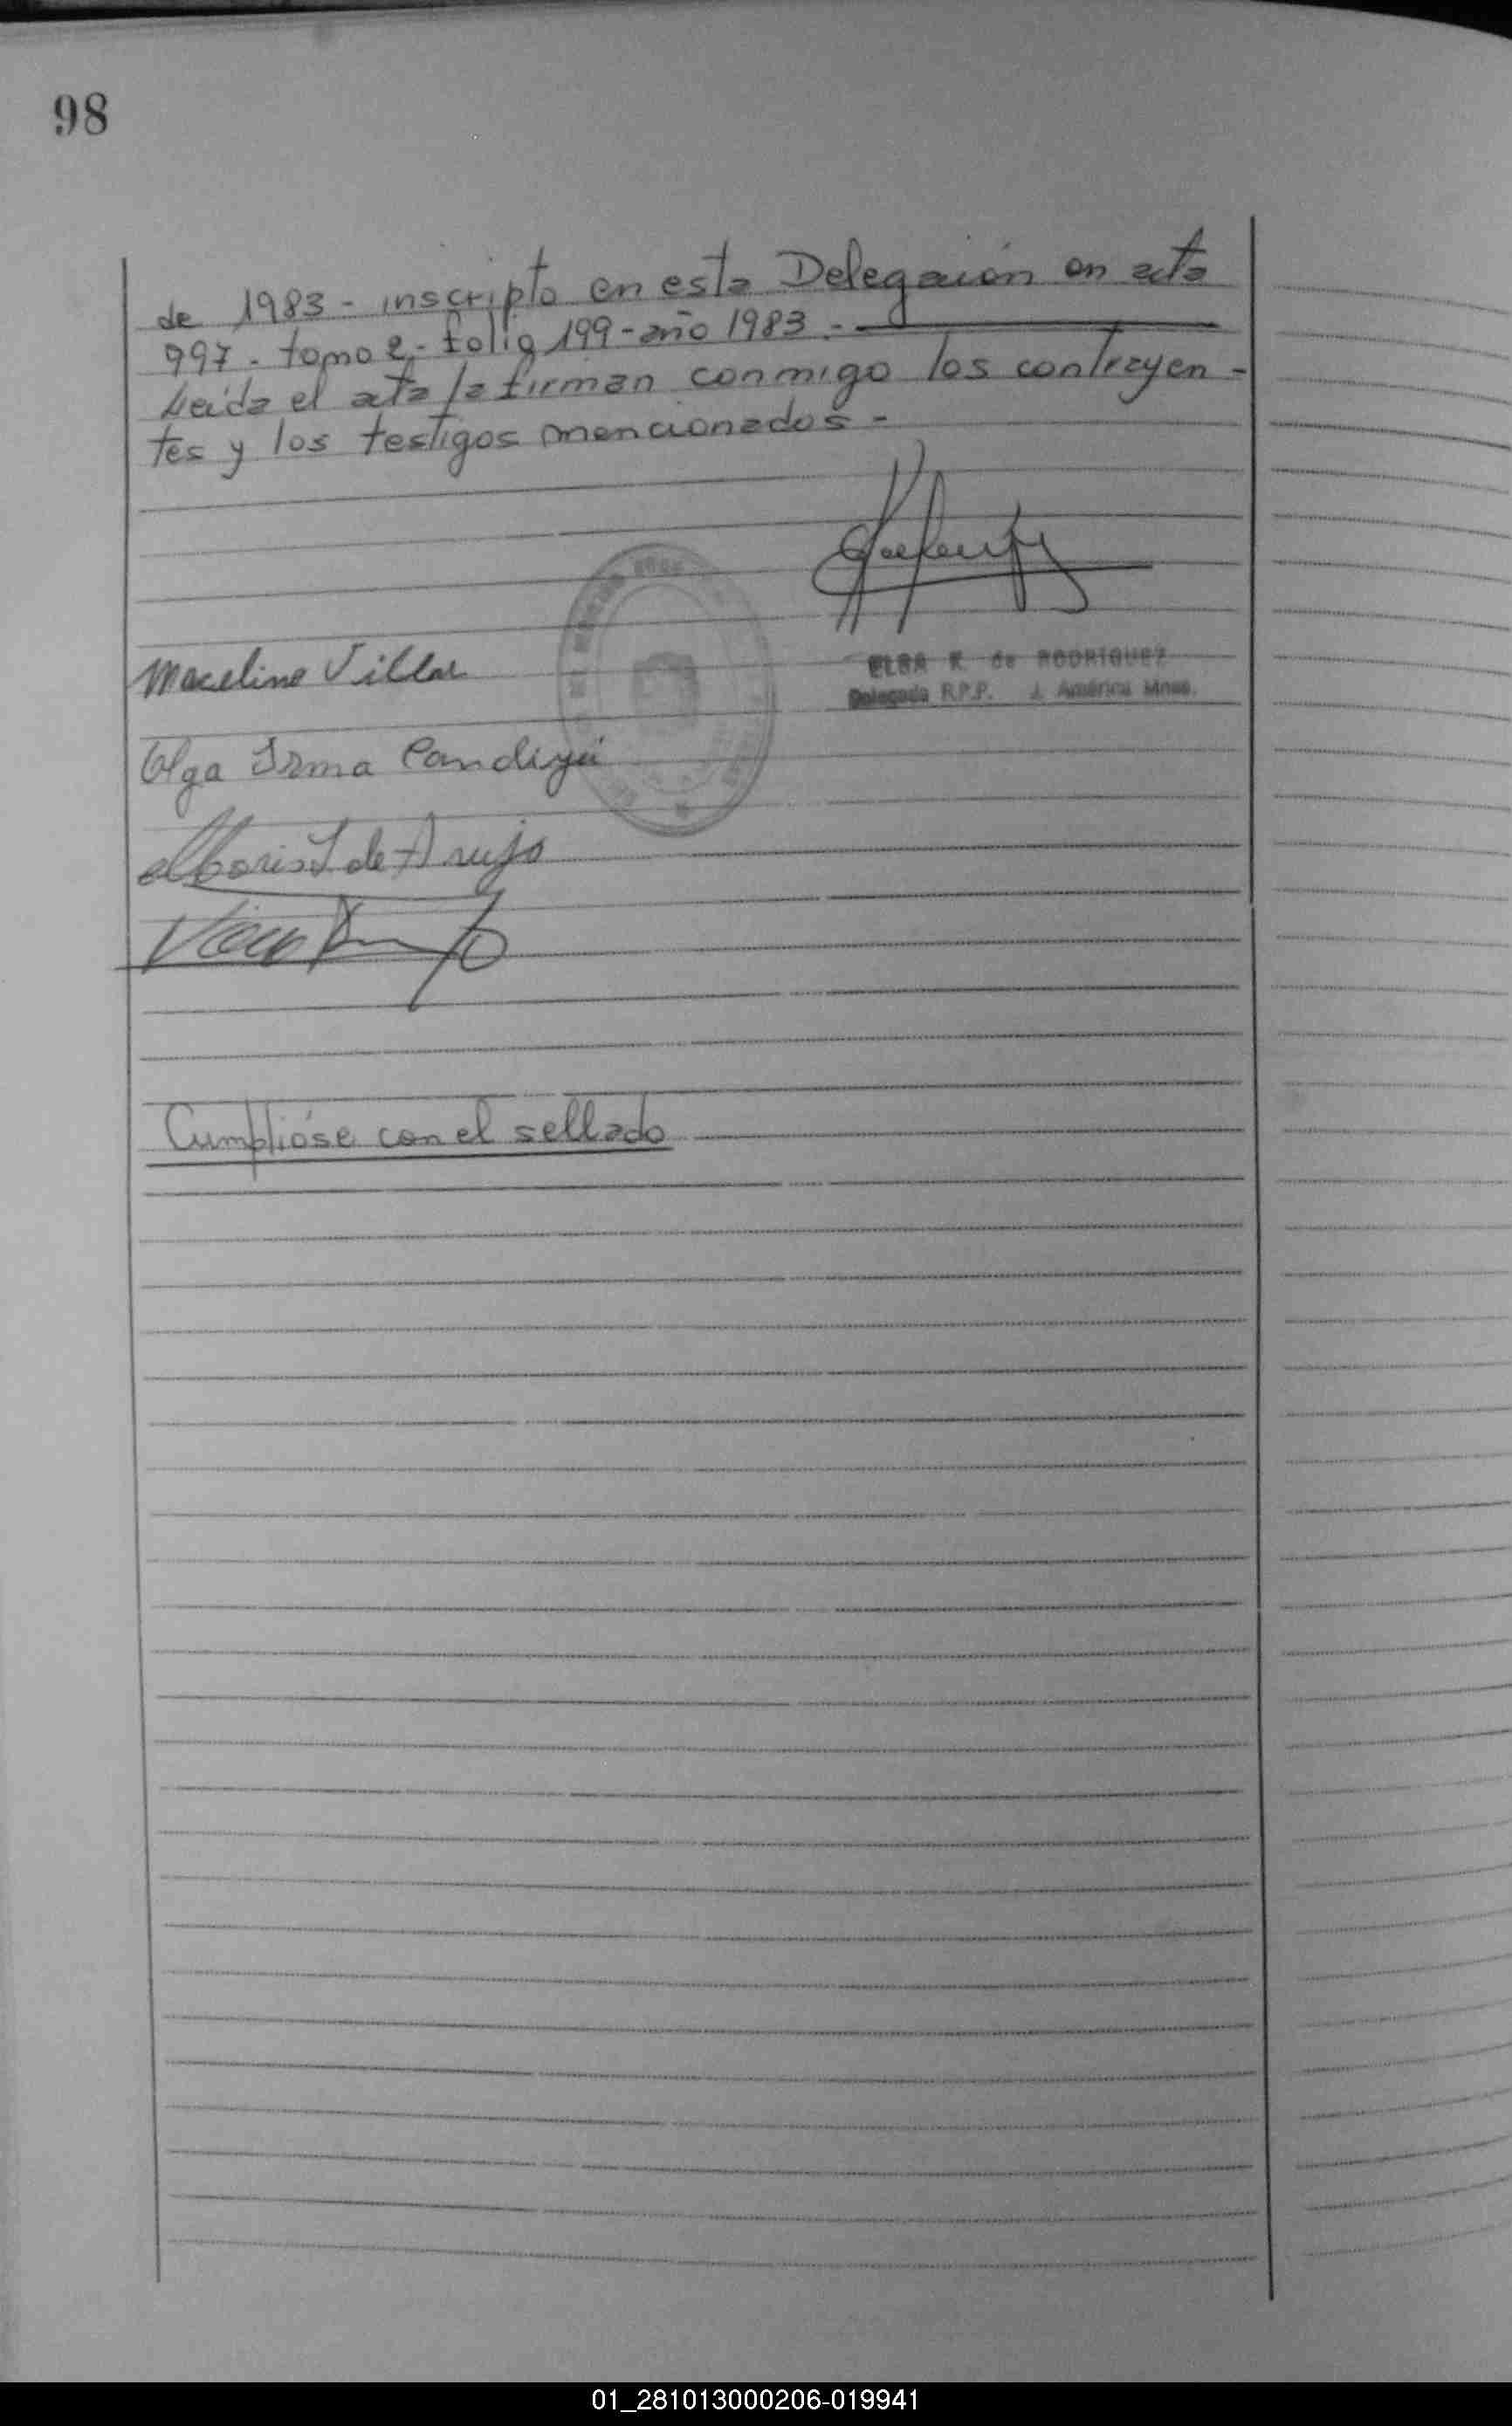 98
de 1983 - inscripto en esta Delegación en acta
997 - tomo 2 - folio 199 - año 1983 -
Leída el acta la firman conmigo los contrayen-
tes y los testigos mencionados -
ELBA K. de RODRIGUEZ
Delegada R.P.P. J. América Mnes.
Maceline Villar
Olga Irma Candiyú
de Araujo
Cumplióse con el sellado
01_281013000206-019941